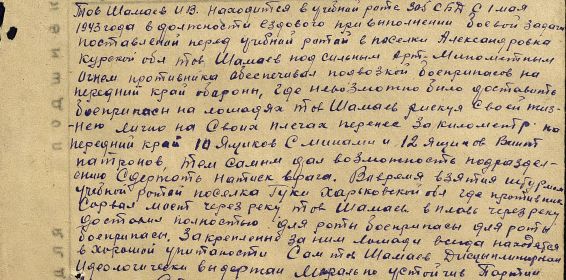 Тов Шамаев И.В. находится в учебной роте 305 СБП С 1 мая
1943 года в должности ездового при выполнении боевой задачи
поставленой перед учебной ротай в поселки Александровка
Курской обл тов Шамаев под сильным Арт-Минометным
Огнем противника обеспечивал подвозкой боеприпасов на
передний край обороны, где невозможно было доставить
боеприпасы на лошадях тов Шамаев рискуя Своей жиз-
-нею лично на Своих плечах перенес за километр на
передний край 10 Ящиков С минами и 12 Ящиков Винт
патронов, тем самым дал возможность подразделе-
-ению Сдержать натиск врага. Вовремя взятия штурмом
учебной ротай поселка Гуки Харьковской обл где противник
Сорвал мост через реку тов Шамаев в плавь через реку
доставил полностью для роты боеприпасы для роты
боеприпасы. Закрепленные за ним лошади всегда находятся
в хорошой упитаности Сам тов Шамаев Дисциплинирован
Идеологически выдержан Морально устойчив Партии
подшивки
для